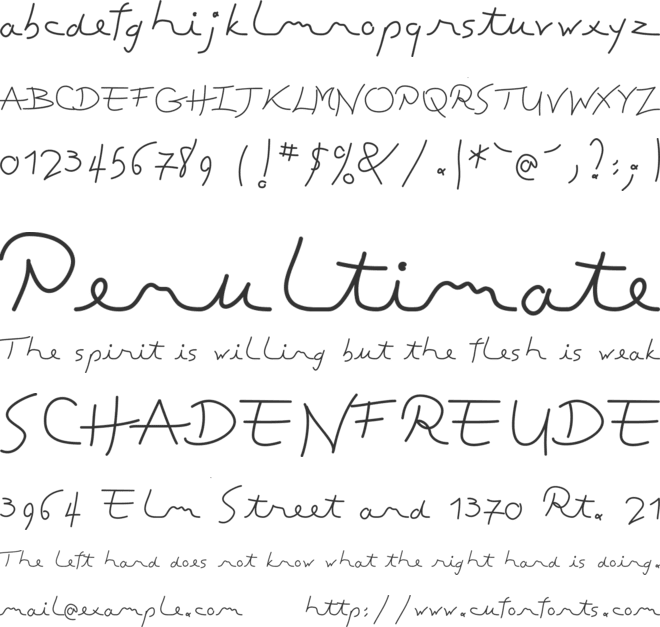 abcdefghijklmnopqrstuvwxyz
ABCDEFGHIJKLMNOPQRSTUVWXYZ
0123456789 (!#$%&/.|*`@´,?:;)
Penultimate
The spirit is willing but the flesh is weak
SCHADENFREUDE
3964 Elm Street and 1370 Rt. 21
The left hand does not know what the right hand is doing.
mail@example.com http://www.cufonfonts.com